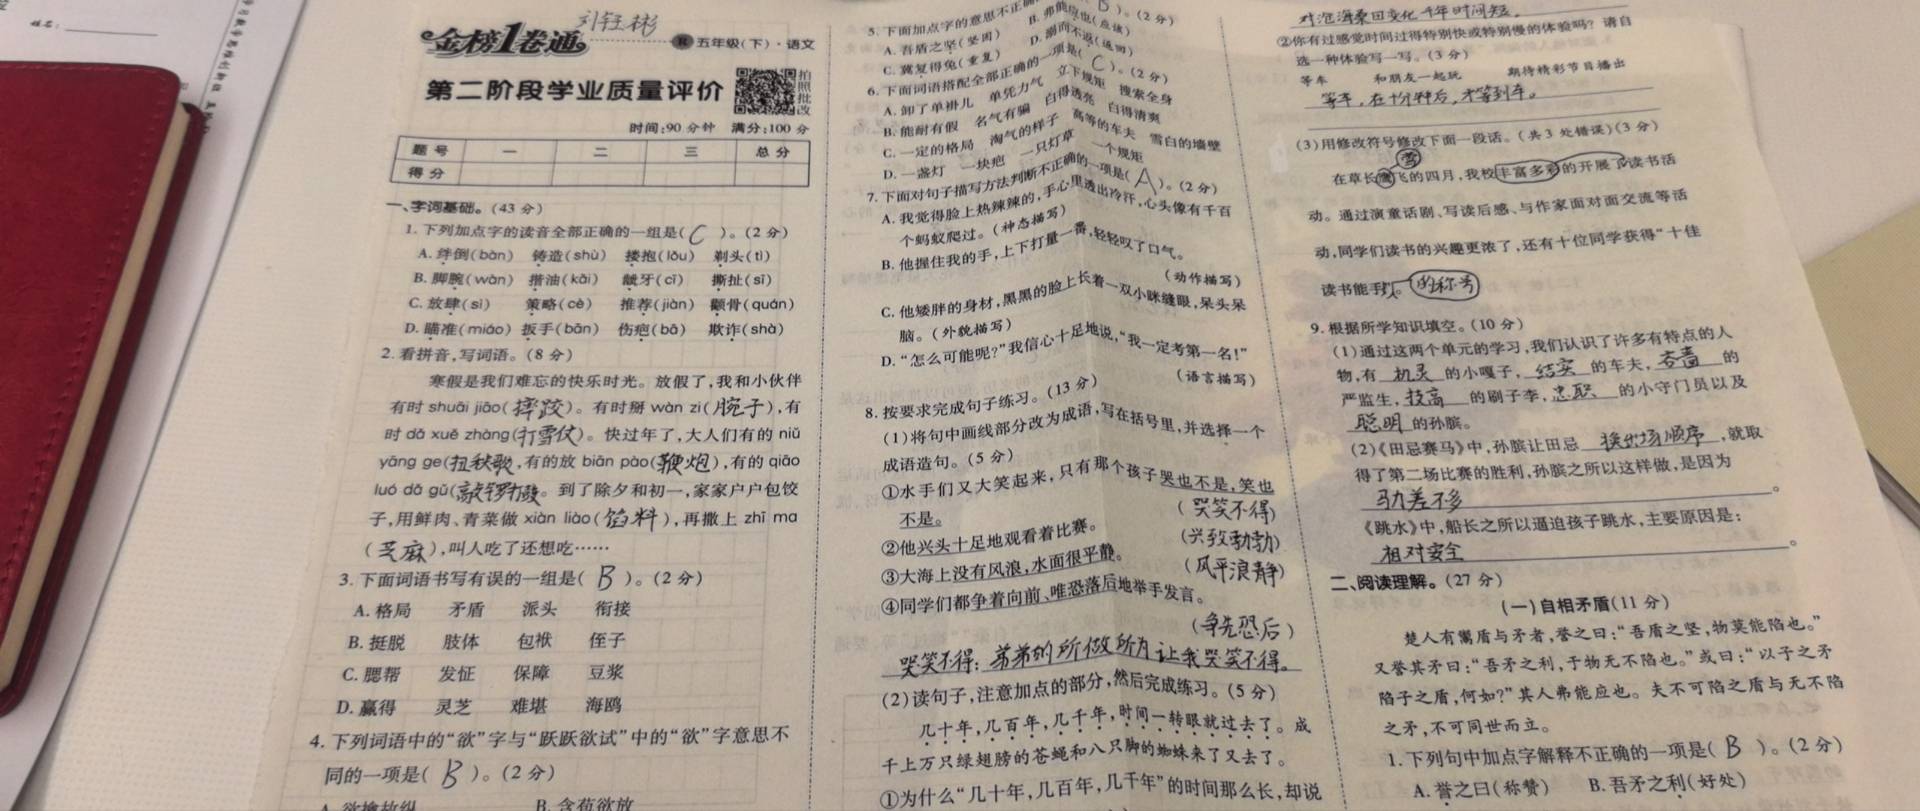 姓名:
刘钰彬
金榜1卷通
R 五年级(下)·语文
第二阶段学业质量评价
拍照批改
时间:90分钟 满分:100分
题号 一 二 三 总分
得分
一、字词基础。(43分)
1.下列加点字的读音全部正确的一组是( C )。(2分)
A.绊倒(bàn) 铸造(shù) 搂抱(lǒu) 剃头(tì)
B.脚腕(wàn) 揩油(kāi) 龇牙(cī) 撕扯(sī)
C.放肆(sì) 策略(cè) 推荐(jiàn) 颧骨(quán)
D.瞄准(miáo) 扳手(bān) 伤疤(bā) 欺诈(shà)
2.看拼音,写词语。(8分)
寒假是我们难忘的快乐时光。放假了,我和小伙伴
有时 shuāi jiāo(摔跤)。有时掰 wàn zi(腕子),有
时 dǎ xuě zhàng(打雪仗)。快过年了,大人们有的 niǔ
yāng ge(扭秧歌,有的放 biān pào(鞭炮),有的 qiāo
luó dǎ gǔ(敲锣打鼓。到了除夕和初一,家家户户包饺
子,用鲜肉、青菜做 xiàn liào(馅料),再撒上 zhī ma
(芝麻),叫人吃了还想吃……
3.下面词语书写有误的一组是( B )。(2分)
A.格局 矛盾 派头 衔接
B.挺脱 肢体 包袱 侄子
C.腮帮 发怔 保障 豆浆
D.赢得 灵芝 难堪 海鸥
4.下列词语中的“欲”字与“跃跃欲试”中的“欲”字意思不
同的一项是( B )。(2分)
A.欲擒故纵 B.含苞欲放
5.下面加点字的意思不正确 D )。(2分)
A.吾盾之坚(坚固) B.弗能应也(应该)
C.冀复得兔(重复) D.溺而不返(返回)
6.下面词语搭配全部正确的一项是( C )。(2分)
A.卸了单褂儿 单凭力气 立下规矩 搜索全身
B.能耐有假 名气有骗 白得透亮 白得清爽
C.一定的格局 淘气的样子 高等的车夫 雪白的墙壁
D.一盏灯 一块疤 一只灯草 一个规矩
7.下面对句子描写方法判断不正确的一项是( A )。(2分)
A.我觉得脸上热辣辣的,手心里透出冷汗,心头像有千百
个蚂蚁爬过。(神态描写)
B.他握住我的手,上下打量一番,轻轻叹了口气。
(动作描写)
C.他矮胖的身材,黑黑的脸上长着一双小眯缝眼,呆头呆
脑。(外貌描写)
D.“怎么可能呢?”我信心十足地说,“我一定考第一名!”
(语言描写)
8.按要求完成句子练习。(13分)
(1)将句中画线部分改为成语,写在括号里,并选择一个
成语造句。(5分)
①水手们又大笑起来,只有那个孩子哭也不是,笑也
不是。 (哭笑不得)
②他兴头十足地观看着比赛。 (兴致勃勃)
③大海上没有风浪,水面很平静。 (风平浪静)
④同学们都争着向前、唯恐落后地举手发言。
(争先恐后)
哭笑不得:弟弟的所做所为让我哭笑不得。
(2)读句子,注意加点的部分,然后完成练习。(5分)
几十年,几百年,几千年,时间一转眼就过去了。成
千上万只绿翅膀的苍蝇和八只脚的蜘蛛来了又去了。
①为什么“几十年,几百年,几千年”的时间那么长,却说
对沧海桑田变化,千年时间短。
②你有过感觉时间过得特别快或特别慢的体验吗?请自
选一种体验写一写。(3分)
等车 和朋友一起玩 期待精彩节目播出
等车,在十分种后,才等到车。
(3)用修改符号修改下面一段话。(共3处错误)(3分)
莺
在草长鹰飞的四月,我校丰富多彩的开展了读书活
动。通过演童话剧、写读后感、与作家面对面交流等活
动,同学们读书的兴趣更浓了,还有十位同学获得“十佳
读书能手”。 的称号
9.根据所学知识填空。(10分)
(1)通过这两个单元的学习,我们认识了许多有特点的人
物,有 机灵 的小嘎子, 结实 的车夫, 吝啬 的
严监生, 技高 的刷子李, 忠职 的小守门员以及
聪明 的孙膑。
(2)《田忌赛马》中,孙膑让田忌 换出场顺序 ,就取
得了第二场比赛的胜利,孙膑之所以这样做,是因为
马力差不多 。
《跳水》中,船长之所以逼迫孩子跳水,主要原因是:
相对安全 。
二、阅读理解。(27分)
(一)自相矛盾(11分)
楚人有鬻盾与矛者,誉之曰:“吾盾之坚,物莫能陷也。”
又誉其矛曰:“吾矛之利,于物无不陷也。”或曰:“以子之矛
陷子之盾,何如?”其人弗能应也。夫不可陷之盾与无不陷
之矛,不可同世而立。
1.下列句中加点字解释不正确的一项是( B )。(2分)
A.誉之曰(称赞) B.吾矛之利(好处)